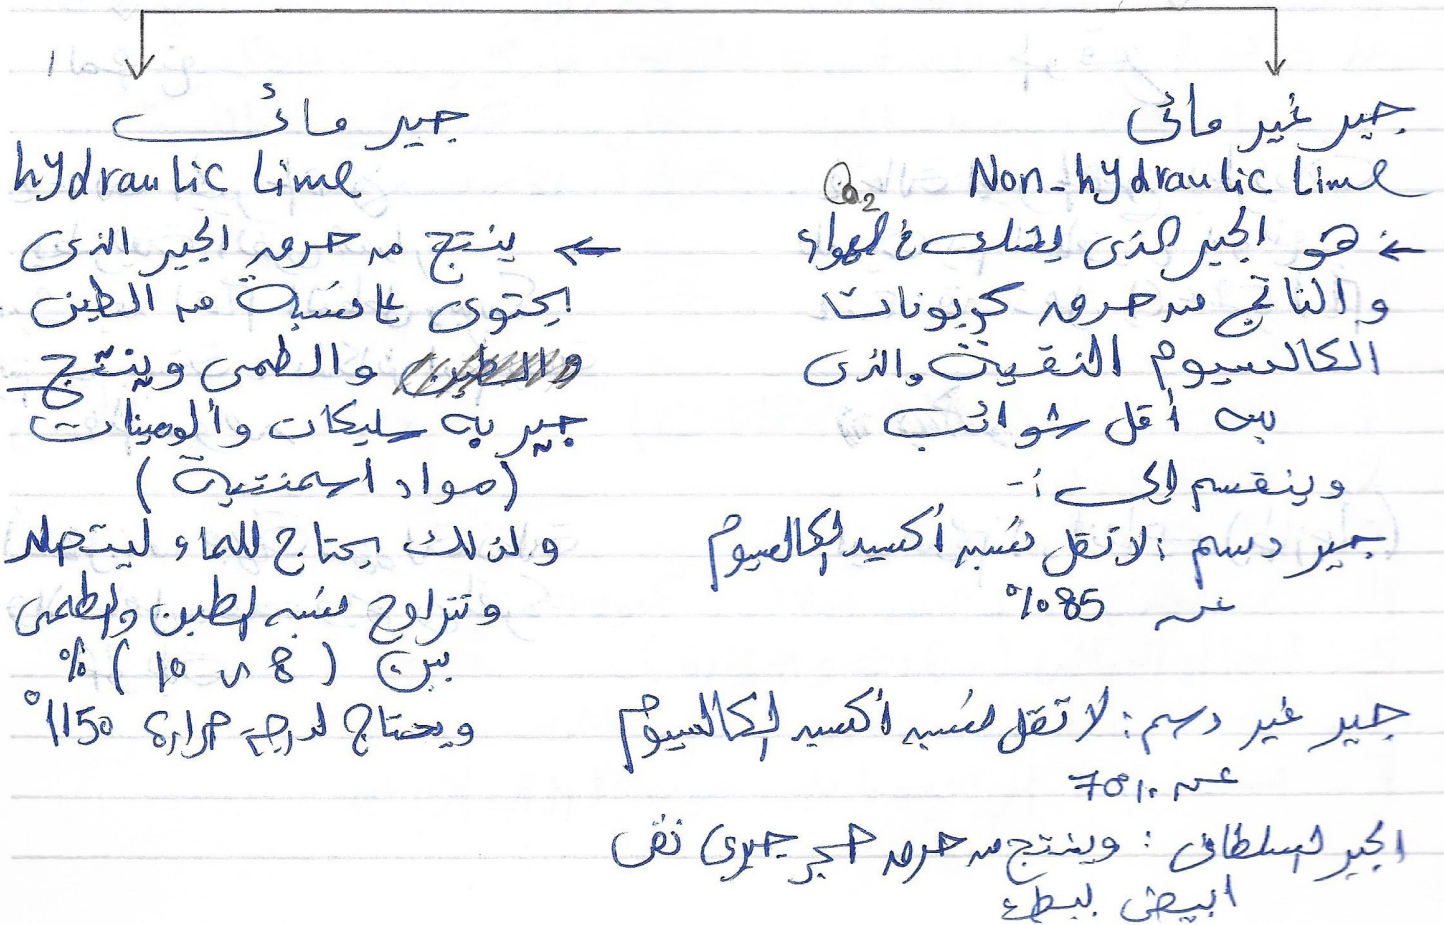 جير غير مائى
Non-hydraulic Lime
هو الجير الذى يشك فى الهواء
والناتج من حرق كربونات
الكالسيوم النقية والذى
به أقل شوائب
وينقسم إلى :-
جير دسم : لا تقل نسبه أكسيد الكالسيوم
عن 85%
جير غير دسم : لا تقل نسبه أكسيد الكالسيوم
عن 70%
الجير السلطانى : وينتج من حرق حجر جيرى نقى
ابيض ببطئ
جير مائى
hydraulic Lime
← ينتج من حرق الجير الذى
يحتوى على نسبة من الطين
والطمى وينتج
جير به سليكات وألومينات
(مواد اسمنتية)
ولذلك يحتاج للماء ليتصلد
وتتراوح نسبه الطين والطمى
بين (8 ل 10) %
ويحتاج لدرجة حرارة 1150°